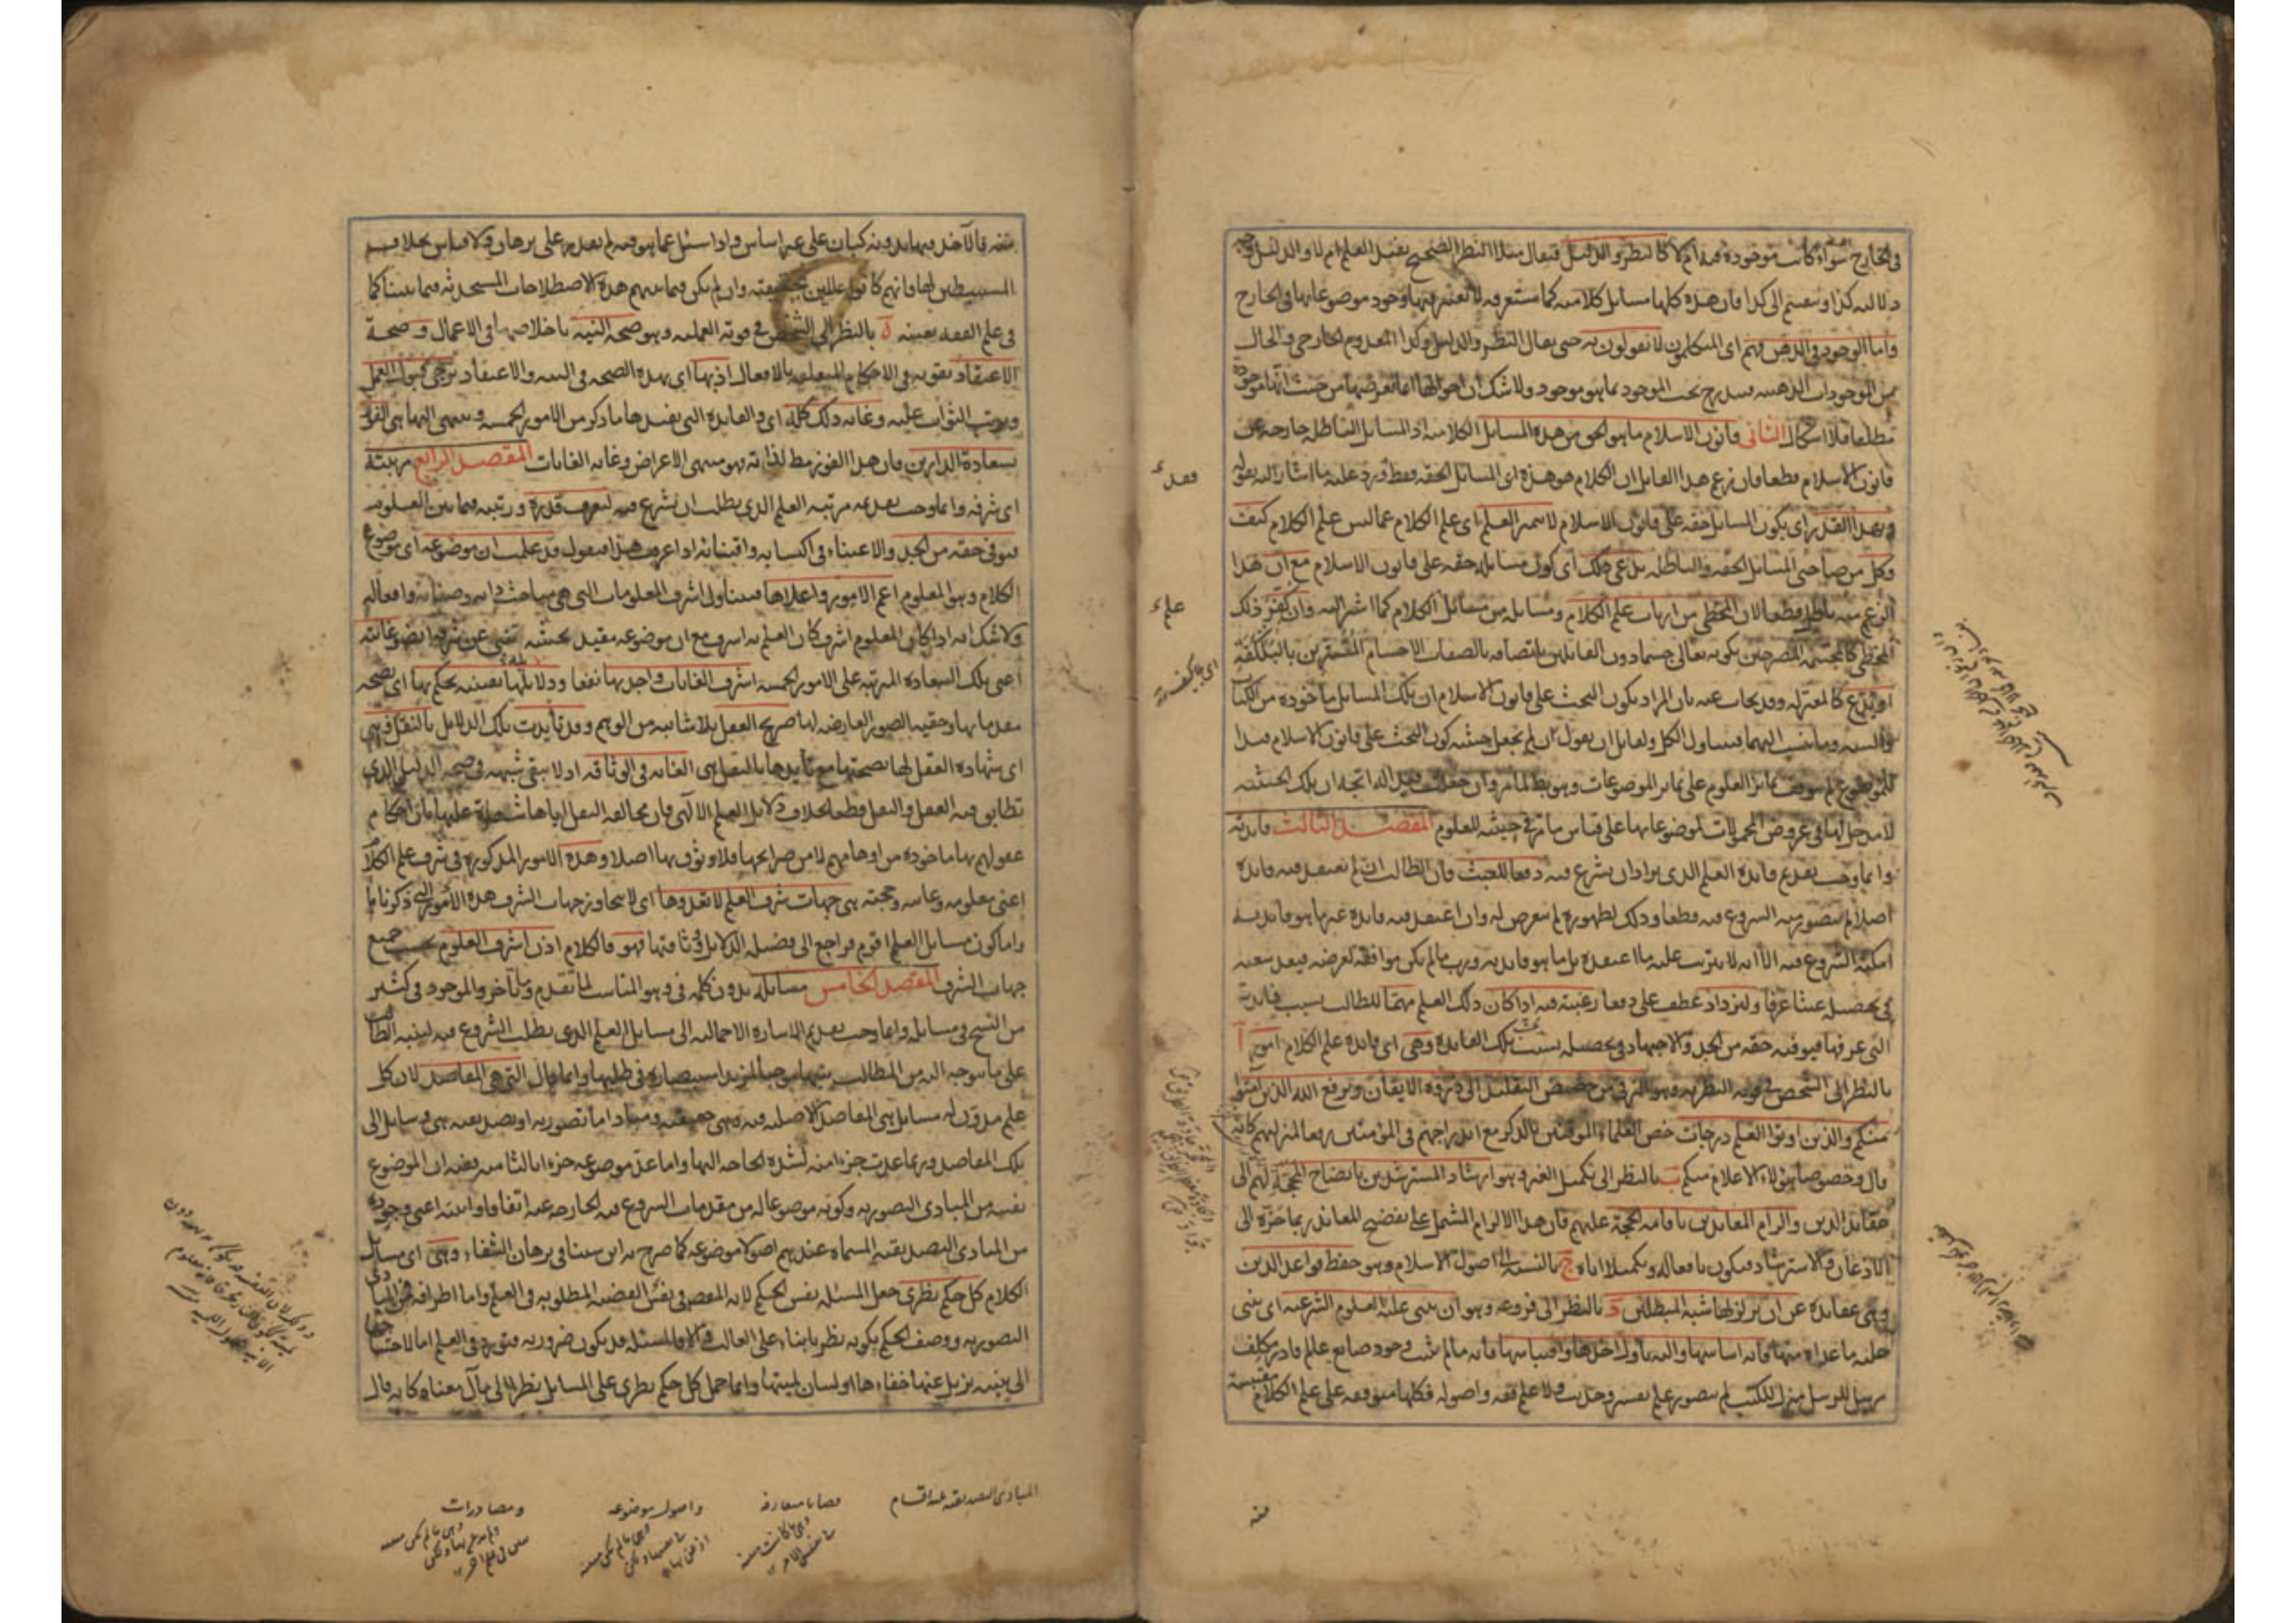 في الخارج سواء كانت موجودة فيه ام لا كالنظر والدليل فيقال مثلا النظر الصحيح يفيد العلم ام لا والدليل وجه
دلالته كذا وينقسم الى كذا فان هذه كلها مسائل كلامية كما ستعرفه لا يعتبر فيها وجود موضوعاتها في الخارج
واما الوجود في الذهن فهم اى المتكلمون لا يقولون به حتى يقال النظر والدليل وكذا المعدوم الخارجي والحال
من الموجودات الذهنية فيندرج تحت الموجود بما هو موجود ولا شك ان احوالها انما تعرضها من حيث انها موجودة
مطلقا فلا اشكال الثاني قانون الاسلام ما هو الحق من هذه المسائل الكلامية اذ المسائل الباطلة خارجة عن
قانون الاسلام قطعا فان زعم هذا القائل ان الكلام هو هذه اى المسائل الحقة فقط ورد عليه ما اشار اليه بقوله
وبهذا القدر اى بكون المسائل حقه على قانون الاسلام لا يتميز العلم اى علم الكلام عما ليس علم الكلام كيف
وكل من صاحبي المسائل الحقه والباطله يدعي ذلك اى كون مسائله حقه على قانون الاسلام مع ان هذا
الزعم منه باطل قطعا لان المخطي من ارباب علم الكلام ومسائله من مسائل الكلام كما اشرنا اليه وان كفر ذلك
المخطي كالمجسمة المصرحين بكونه تعالى جسما دون القائلين باتصافه بالصفات الاجسام المتسترين بالبلكفة
او بدع كالمعتزله وقد يجاب عنه بان المراد بكون البحث على قانون الاسلام ان تلك المسائل ماخوذه من الكتاب
والسنه وما ينسب اليهما فيتناول الكل ولقائل ان يقول ان لم تجعل حيثية كون البحث على قانون الاسلام قيدا
للموضوع لم يتوقف تمايز العلوم على تمايز الموضوعات وهو باطل لما مر وان جعلت قيدا له اتجه ان تلك الحيثية
لا مدخل لها في عروض المحمولات لموضوعاتها على قياس ما مر في حيثية المعلوم المقصد الثالث فايدته
وانما وجب تقديم فايدة العلم الذي يراد ان يشرع فيه دفعا للعبث فان الطالب ان لم يعتقد فيه فايدة
اصلا لم يتصور منه الشروع فيه قطعا وذلك لظهوره لم يتعرض له وان اعتقد فيه فايدة غير ما هو فايدته
امكنه الشروع فيه الا انه لا يترتب عليه ما اعتقده بل ما هو فايدته وربما لم يكن موافقة لغرضه فيعد سعيه
في تحصيله عبثا عرفا وليزداد عطف على دفعا رغبته فيه اذا كان ذلك العلم مهما للطالب بسبب فايدته
التي عرفها فيوفيه حقه من الجد والاجتهاد في تحصيله بحسب تلك الفايدة وهي اى فايدة علم الكلام امور آ
بالنظر الى الشخص في قوته النظريه وهو الترقي من حضيض التقليد الى ذروة الايقان ويرفع الله الذين امنوا
منكم والذين اوتوا العلم درجات خص العلماء الموقنين بالذكر مع اندراجهم في المؤمنين رفعا لمنزلتهم كانه
قال وخصوصا هؤلاء الاعلام منكم ب بالنظر الى تكميل الغير وهو ارشاد المسترشدين بايضاح المحجة لهم الى
عقائد الدين والزام المعاندين باقامه الحجة عليهم فان هذا الالزام المشتمل على تفضيح المعاند ربما جره الى
الاذعان والاسترشاد فيكون نافعا له وتكميلا اياه ج بالنسبة الى اصول الاسلام وهو حفظ قواعد الدين
وهي عقايده عن ان يزلزلها شبه المبطلين د بالنظر الى فروعه وهو ان يبنى عليه العلوم الشرعيه اى يبنى
عليه ما عداه منها فانه اساسها واليه يأول اخذها واقتباسها فانه ما لم يثبت وجود صانع عالم قادر مكلف
مرسل للرسل منزل للكتب لم يتصور علم تفسير وحديث ولا علم فقه واصوله فكلها متوقفه على علم الكلام مقتبسة
منه فالآخذ فيها بدونه كبان على غير اساس واذا سئل عما هو فيه لم يقدر على برهان ولا قياس بخلاف
المستنبطين لها فانهم كانوا عالمين بحقيقته وان لم يكن فيما بينهم هذه الاصطلاحات المستحدثه فيما بيننا كما
في علم الفقه بعينه ه بالنظر الى الشخص في قوته العمليه وهو صحة النيه باخلاصها في الاعمال وصحة
الاعتقاد بقوته في الاحكام المتعلقه بالافعال اذ بها اى بهذه الصحه في النيه والاعتقاد يرجى قبول العمل
وترتب الثواب عليه وغايه ذلك كله اى والفايدة التي يفيدها ما ذكر من الامور الخمسه وينتهي اليها هي الفوز
بسعادة الدارين فان هذا الفوز مطلوب لذاته فهو منتهى الاغراض وغاية الغايات المقصد الرابع مرتبته
اى شرفه وانما وجب تقديم مرتبة العلم الذي يطلب ان يشرع فيه ليعرف قدره ورتبته فيما بين العلوم
فيوفى حقه من الجد والاعتناء في اكتسابه واقتنائه اذا عرفت هذا فنقول قد علمت ان موضوعه اى موضوع
الكلام وهو المعلوم اعم الامور واعلاها فيتناول اشرف المعلومات التي هي مباحث ذاته وصفاته وافعاله
ولا شك انه اذا كان المعلوم اشرف كان العلم به اشرف مع ان موضوعه مقيد بحيثية تنبي عن شرفه ايضا وغايته
اعني تلك السعادة المترتبه على الامور الخمسه اشرف الغايات واجداها نفعا ودلائله يقينية يحكم بها اى بصحة
مقدماتها وحقية الصور العارضه لها صريح العقل بلا شائبه من الوهم وقد تأيدت تلك الدلائل بالنقل وهي
اى شهادة العقل لها بصحتها مع تأيدها بالنقل هي الغايه في الوثاقه اذ لا يبقى شبهه في صحة الدليل الذي
تطابق فيه العقل والنقل قطعا بخلاف دلائل العلم الالهي فان مخالفة النقل اياها شاهدة عليها بان احكام
عقولهم بها ماخوذه من اوهامهم لا من صرايحها فلا وثوق بها اصلا وهذه الامور المذكورة في شرف علم الكلام
اعني معلومه وغايته وحجته هي جهات شرف العلم لا تعدوها اى لا يتجاوز جهات الشرف هذه الامور التي ذكرناها
واما كون مسائل العلم اقوم فراجع الى فضيلة الدلائل في وثاقتها فهو فالكلام اذن اشرف العلوم بحسب جميع
جهات الشرف المقصد الخامس مسائله بدون كلمة في وهو المناسب لما تقدم وما تأخر والموجود في كثير
من النسخ في مسائله وانما وجب تقديم الاشارة الاجمالية الى مسائل العلم الذي يطلب الشروع فيه ليتنبه الطالب
على ما يتوجه اليه من المطالب تنبها موجبا لمزيد استبصاره في طلبها وانما قال التي هي المقاصد لان كل
علم مدون له مسائل هي المقاصد الاصليه فيه وهي حقيقته ومبادي اما تصوريه او تصديقيه هي وسائل الى
تلك المقاصد وربما عدت جزءا منه لشدة الحاجه اليها واما عد موضوعه جزءا ثالثا منه ففيه ان الموضوع
نفسه من المبادي التصوريه وكونه موضوعا له من مقدمات الشروع فيه الخارجه عنه اتفاقا وانيته اعني وجوده
من المبادي التصديقيه المسماة عندهم اصولا موضوعه كما صرح به ابن سينا في برهان الشفاء وهي اى مسائل
الكلام كل حكم نظري جعل المسئله نفس الحكم لانه المقصود في نفس القضيه المطلوبه في العلم واما اطرافه فمن المبادي
التصوريه ووصف الحكم بكونه نظريا بناء على الغالب والا فالمسئله قد يكون ضروريه فتورد في العلم اما لاحتياجها
الى تنبيه يزيل عنها خفاءها او لبيان لميتها وانما حمل كل حكم نظري على المسائل نظرا الى مآل معناه كانه قال
المبادي التصديقية عندهم اقسام
قضايا متعارفه
واصول موضوعه
ومصادرات